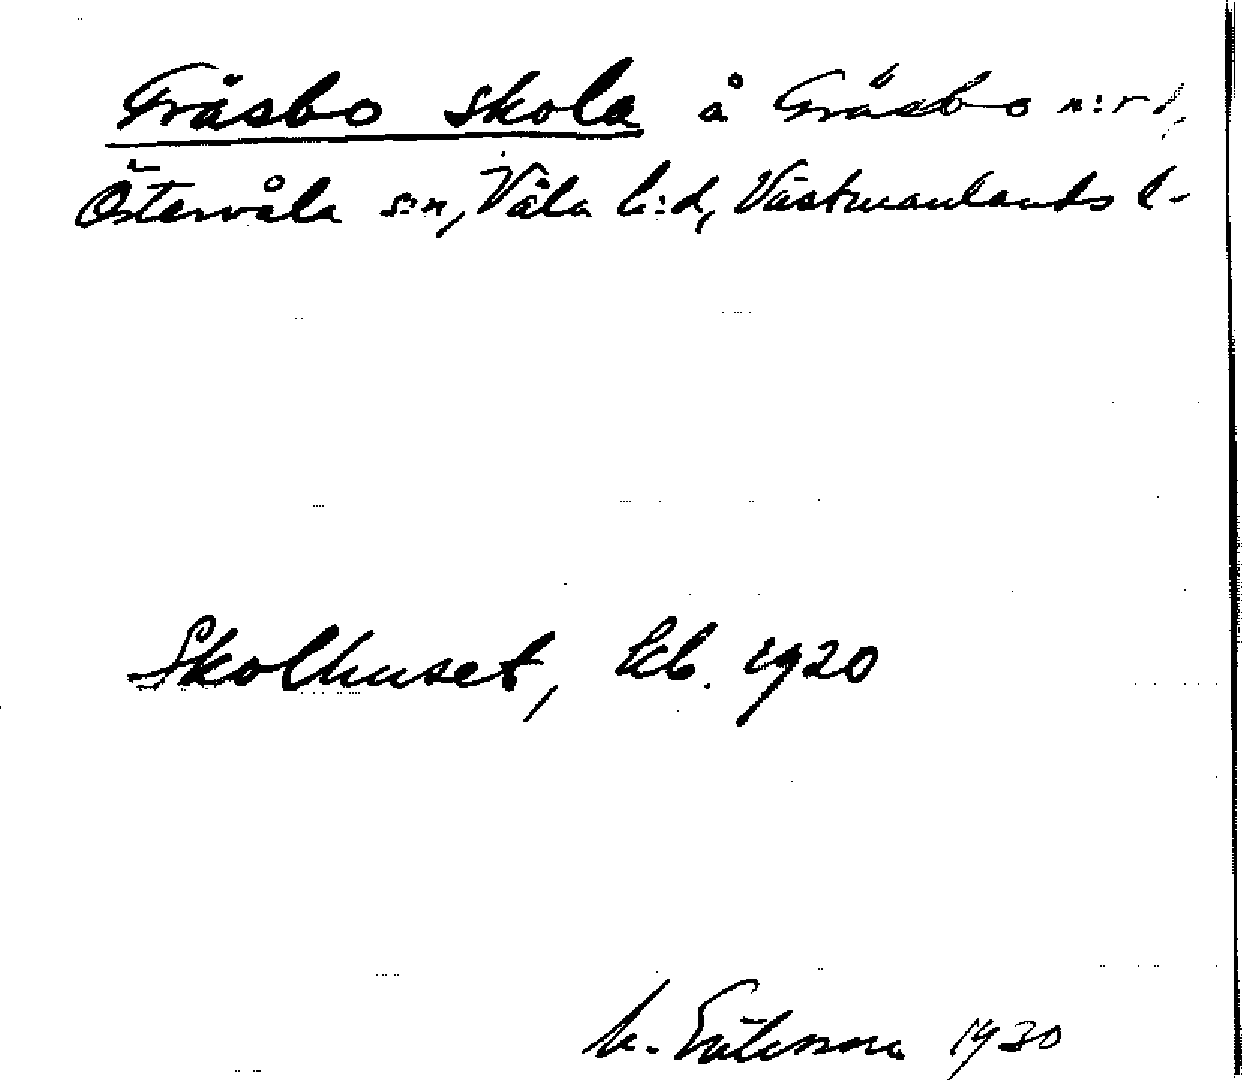 Gräsbo skola å Gräsbo n:r 1,
Östervåla s:n, Våla h:d, Västmanlands l-
Skolhuset, 1920
1930